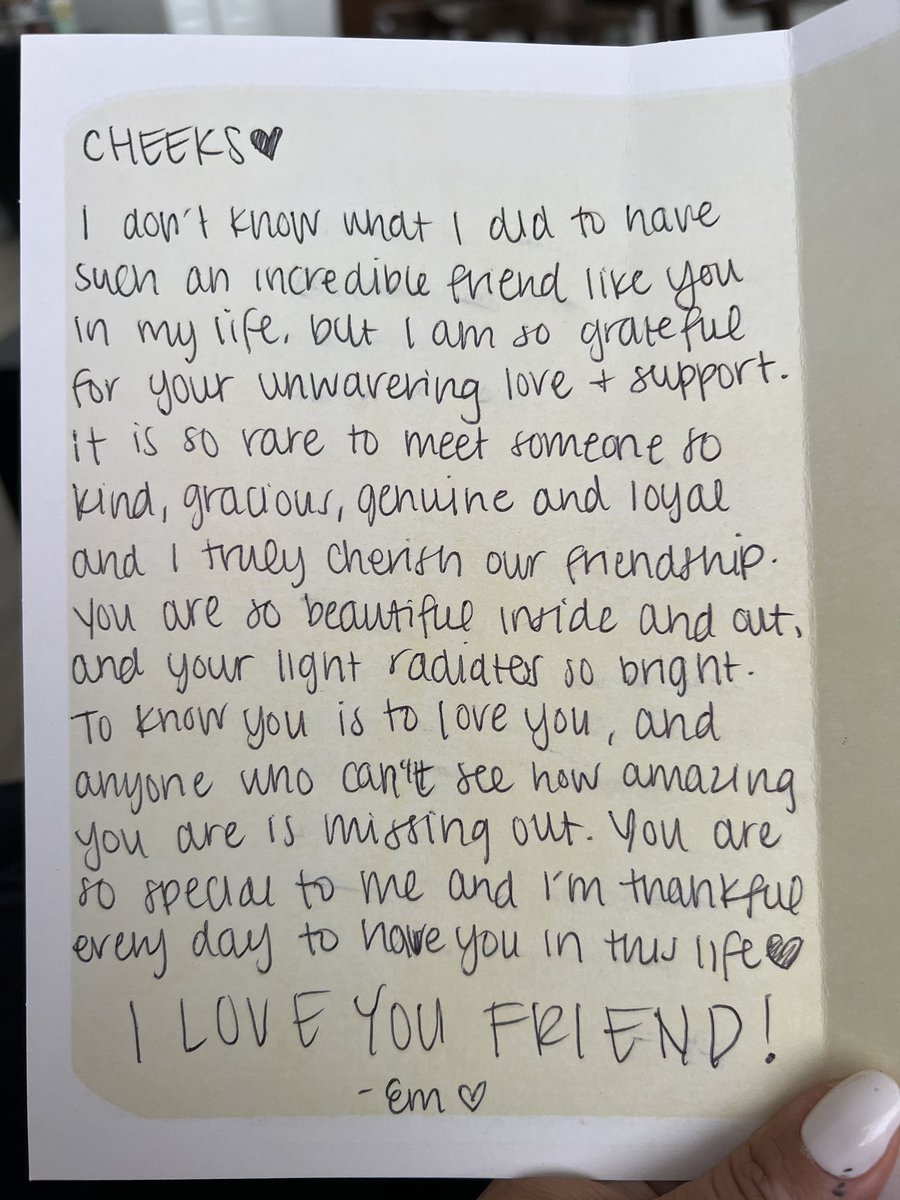 CHEEKS♥
I don't know what I did to have
such an incredible friend like you
in my life, but I am so grateful
for your unwavering love + support.
it is so rare to meet someone so
kind, gracious, genuine and loyal
and I truly cherish our friendship.
You are so beautiful inside and out,
and your light radiates so bright.
To know you is to love you, and
anyone who can't see how amazing
you are is missing out. You are
so special to me and I'm thankful
every day to have you in this life♥
I LOVE YOU FRIEND!
-Em♡